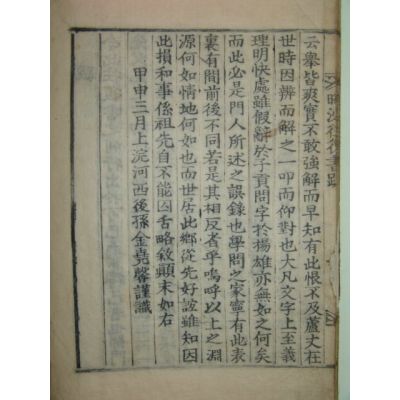 云擧皆爽實不敢強解而早知有此恨不及蘆丈在
世時因辨而解之一叩而仰對也大凡文字上至義
理明快處雖假辭於子貢問字於楊雄亦無如之何矣
而此必是門人所述之誤錄也學問之家寧有此表
裏有間前後不同若是其相反者乎嗚呼以上之淵
源何如情地何如也而世居此鄉從先好誼雖知因
此損和事係祖先自不能囚舌略敘顚末如右
甲申三月上淀河西後孫金堯馨謹識